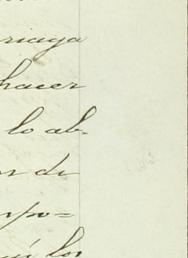 riaga
hacer
lo ab-
n de
rpo=
los